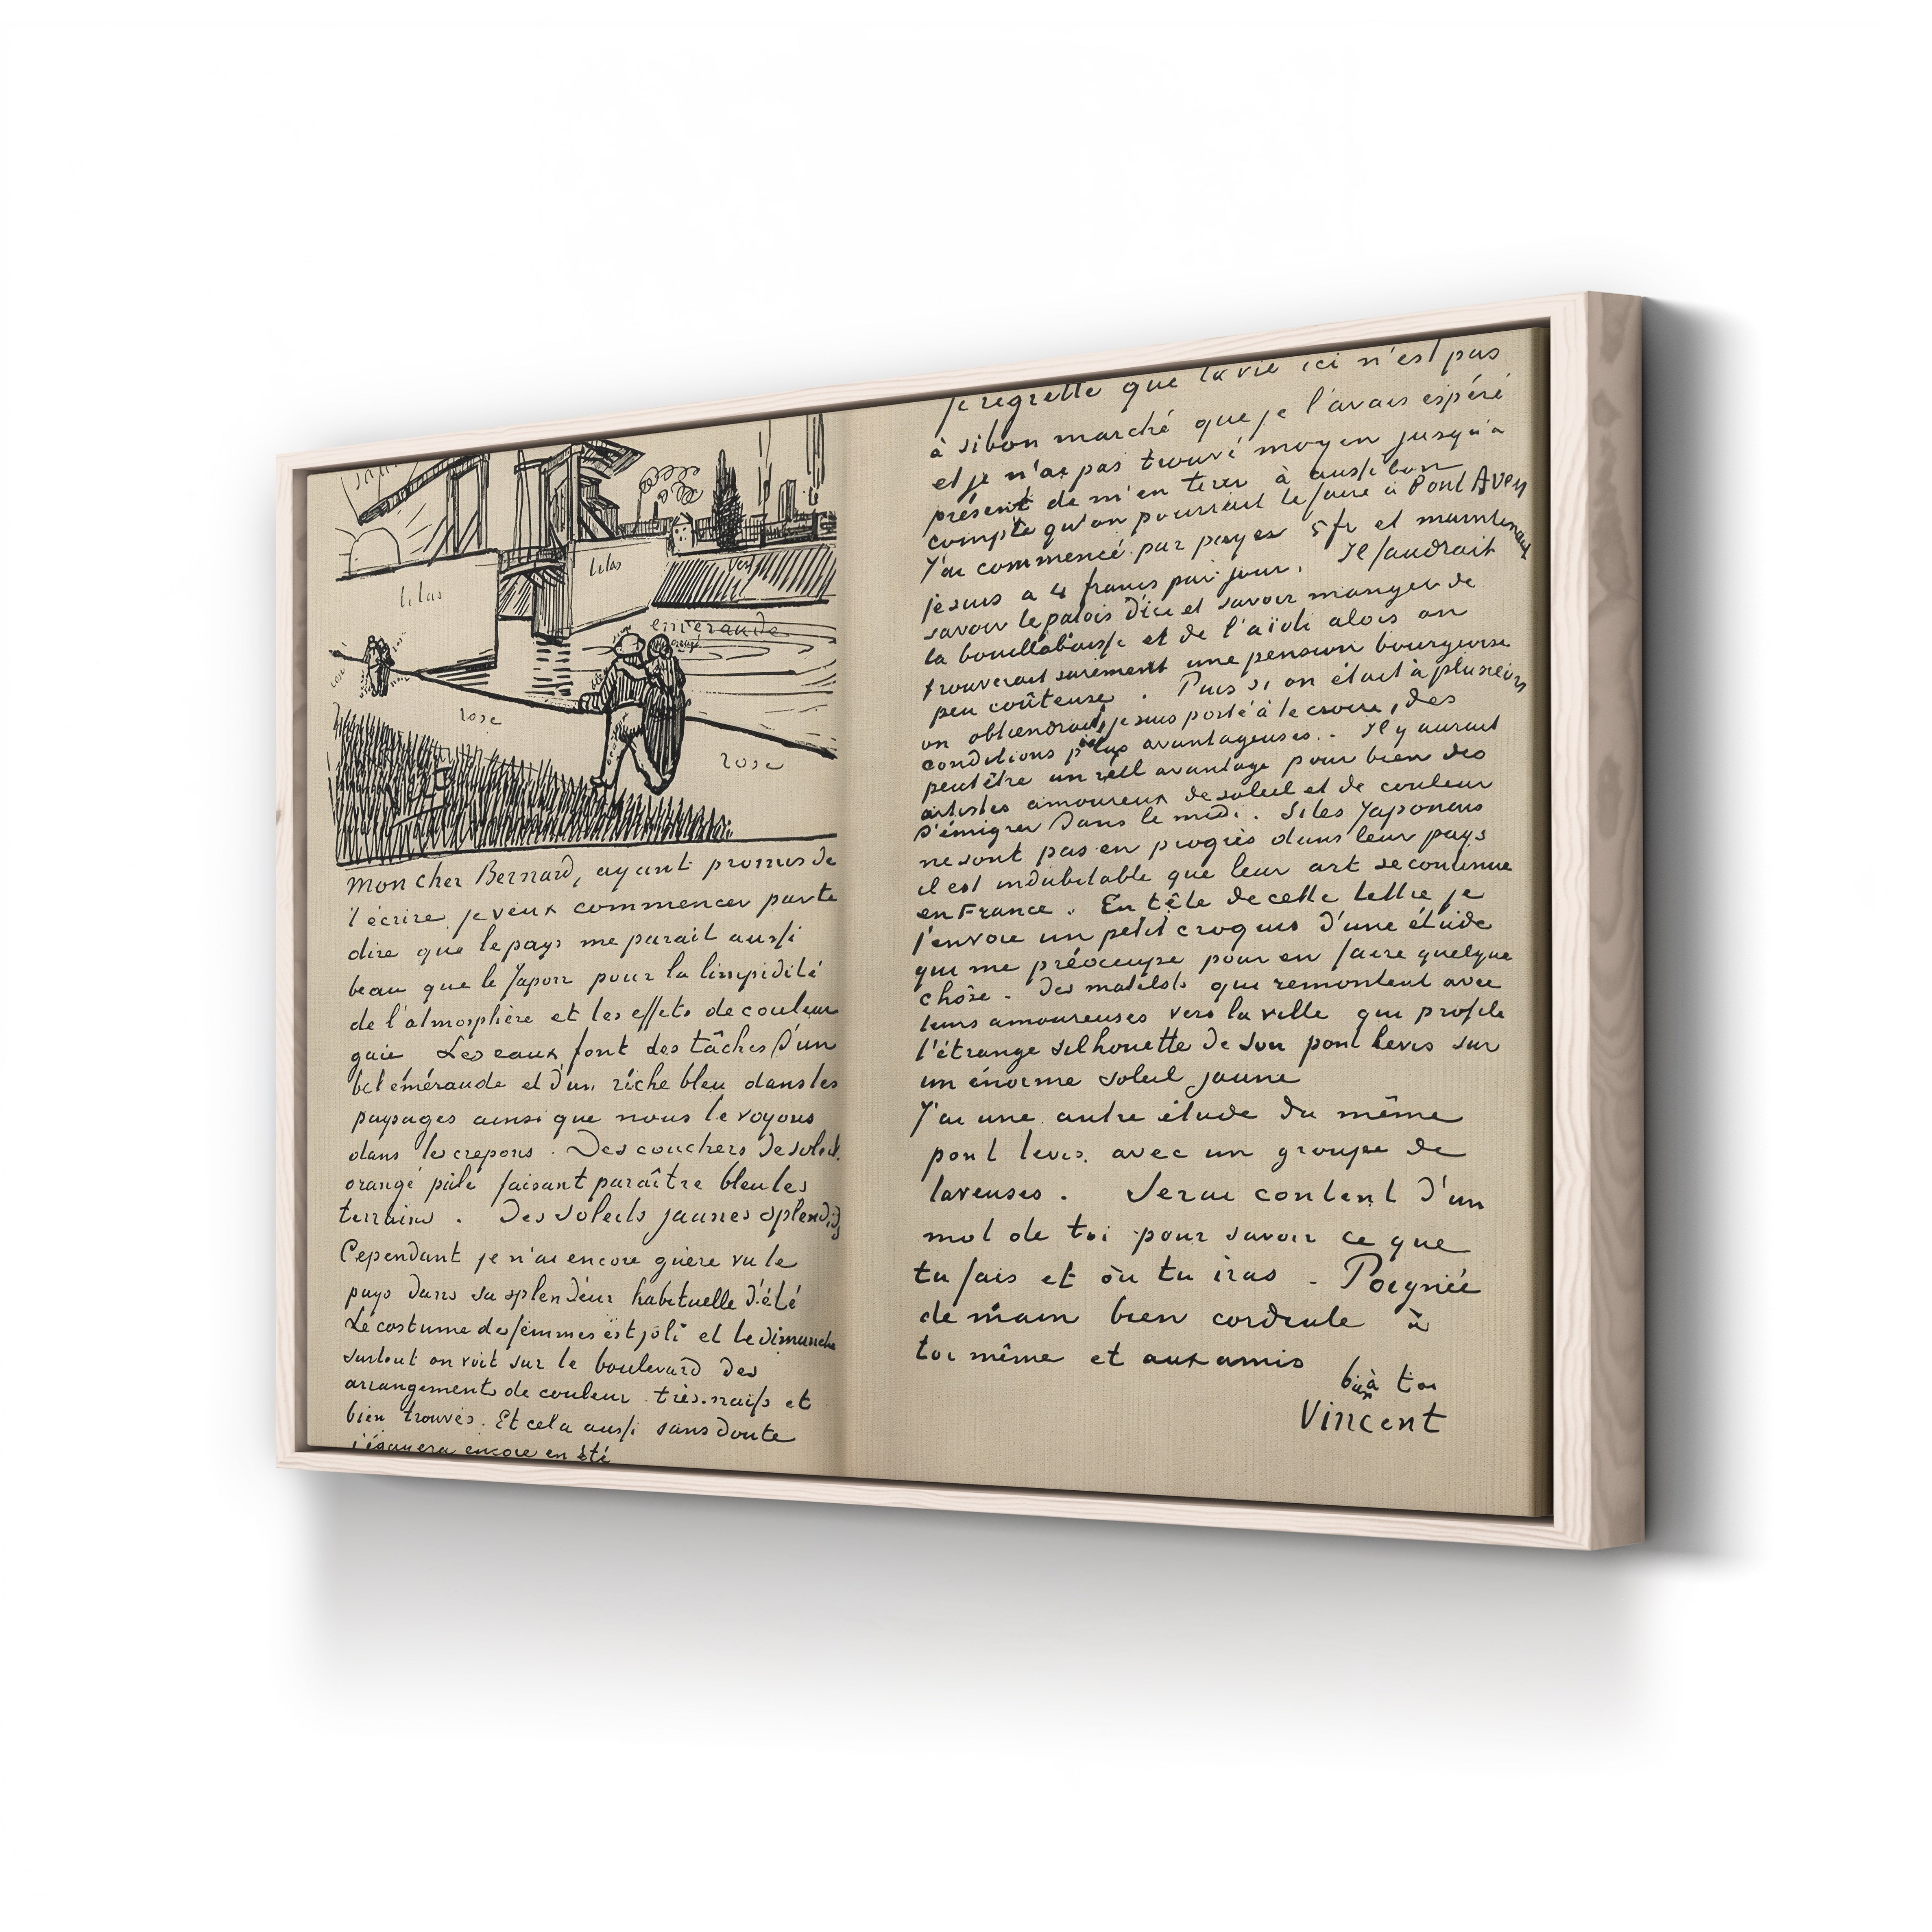 lilas
lilas
vert
emeraude
rose
rose
mon cher Bernard, ayant promis de
t'écrire je veux commencer par te
dire que le pays me parait aussi
beau que le Japon pour la limpidité
de l'atmosphère et les effets de couleur
gaie Les eaux font des tâches d'un
bel éméraude et d'un riche bleu dans les
paysages ainsi que nous le voyons
dans les crepons. Des couchers de soleil
orangé pâle faisant paraître bleu les
terrains. Des soleils jaunes splendides
Cependant je n'ai encore guère vu le
pays dans sa splendeur habituelle d'été
Le costume des femmes est joli et le dimanche
surtout on voit sur le boulevard des
arrangements de couleur très naïfs et
bien trouvés. Et cela aussi sans doute
s'égayera encore en été
je regrette que la vie ici n'est pas
à si bon marché que je l'avais espéré
et je n'ai pas trouvé moyen jusqu'à
présent de m'en tirer à aussi bon
compte qu'on pourrait le faire à Pont Aven
J'ai commencé par payer 5 fr et maintenant
je suis a 4 francs par jour. Il faudrait
savoir le patois d'ici et savoir manger de
la bouillabaisse et de l'aïoli alors on
trouverait surement une pension bourgeoise
peu coûteuse. Puis si on était à plusieurs
on obtiendrait, je suis porté à le croire, des
conditions plus avantageuses. Il y aurait
peut être un réel avantage pour bien des
artistes amoureux de soleil et de couleur
d'émigrer dans le midi. Si les Japonais
ne sont pas en progrès dans leur pays
il est indubitable que leur art se continue
en France. En tête de cette lettre je
t'envoie un petit croquis d'une étude
qui me préoccupe pour en faire quelque
chôse - Des matelots qui remontent avec
leurs amoureuses vers la ville qui profile
l'étrange silhouette de son pont levis sur
un énorme soleil jaune
J'ai une autre étude du même
pont levis avec un groupe de
laveuses. Serai content d'un
mot de toi pour savoir ce que
tu fais et où tu iras - Poignée
de main bien cordiale à
toi même et aux amis
bien à toi
Vincent